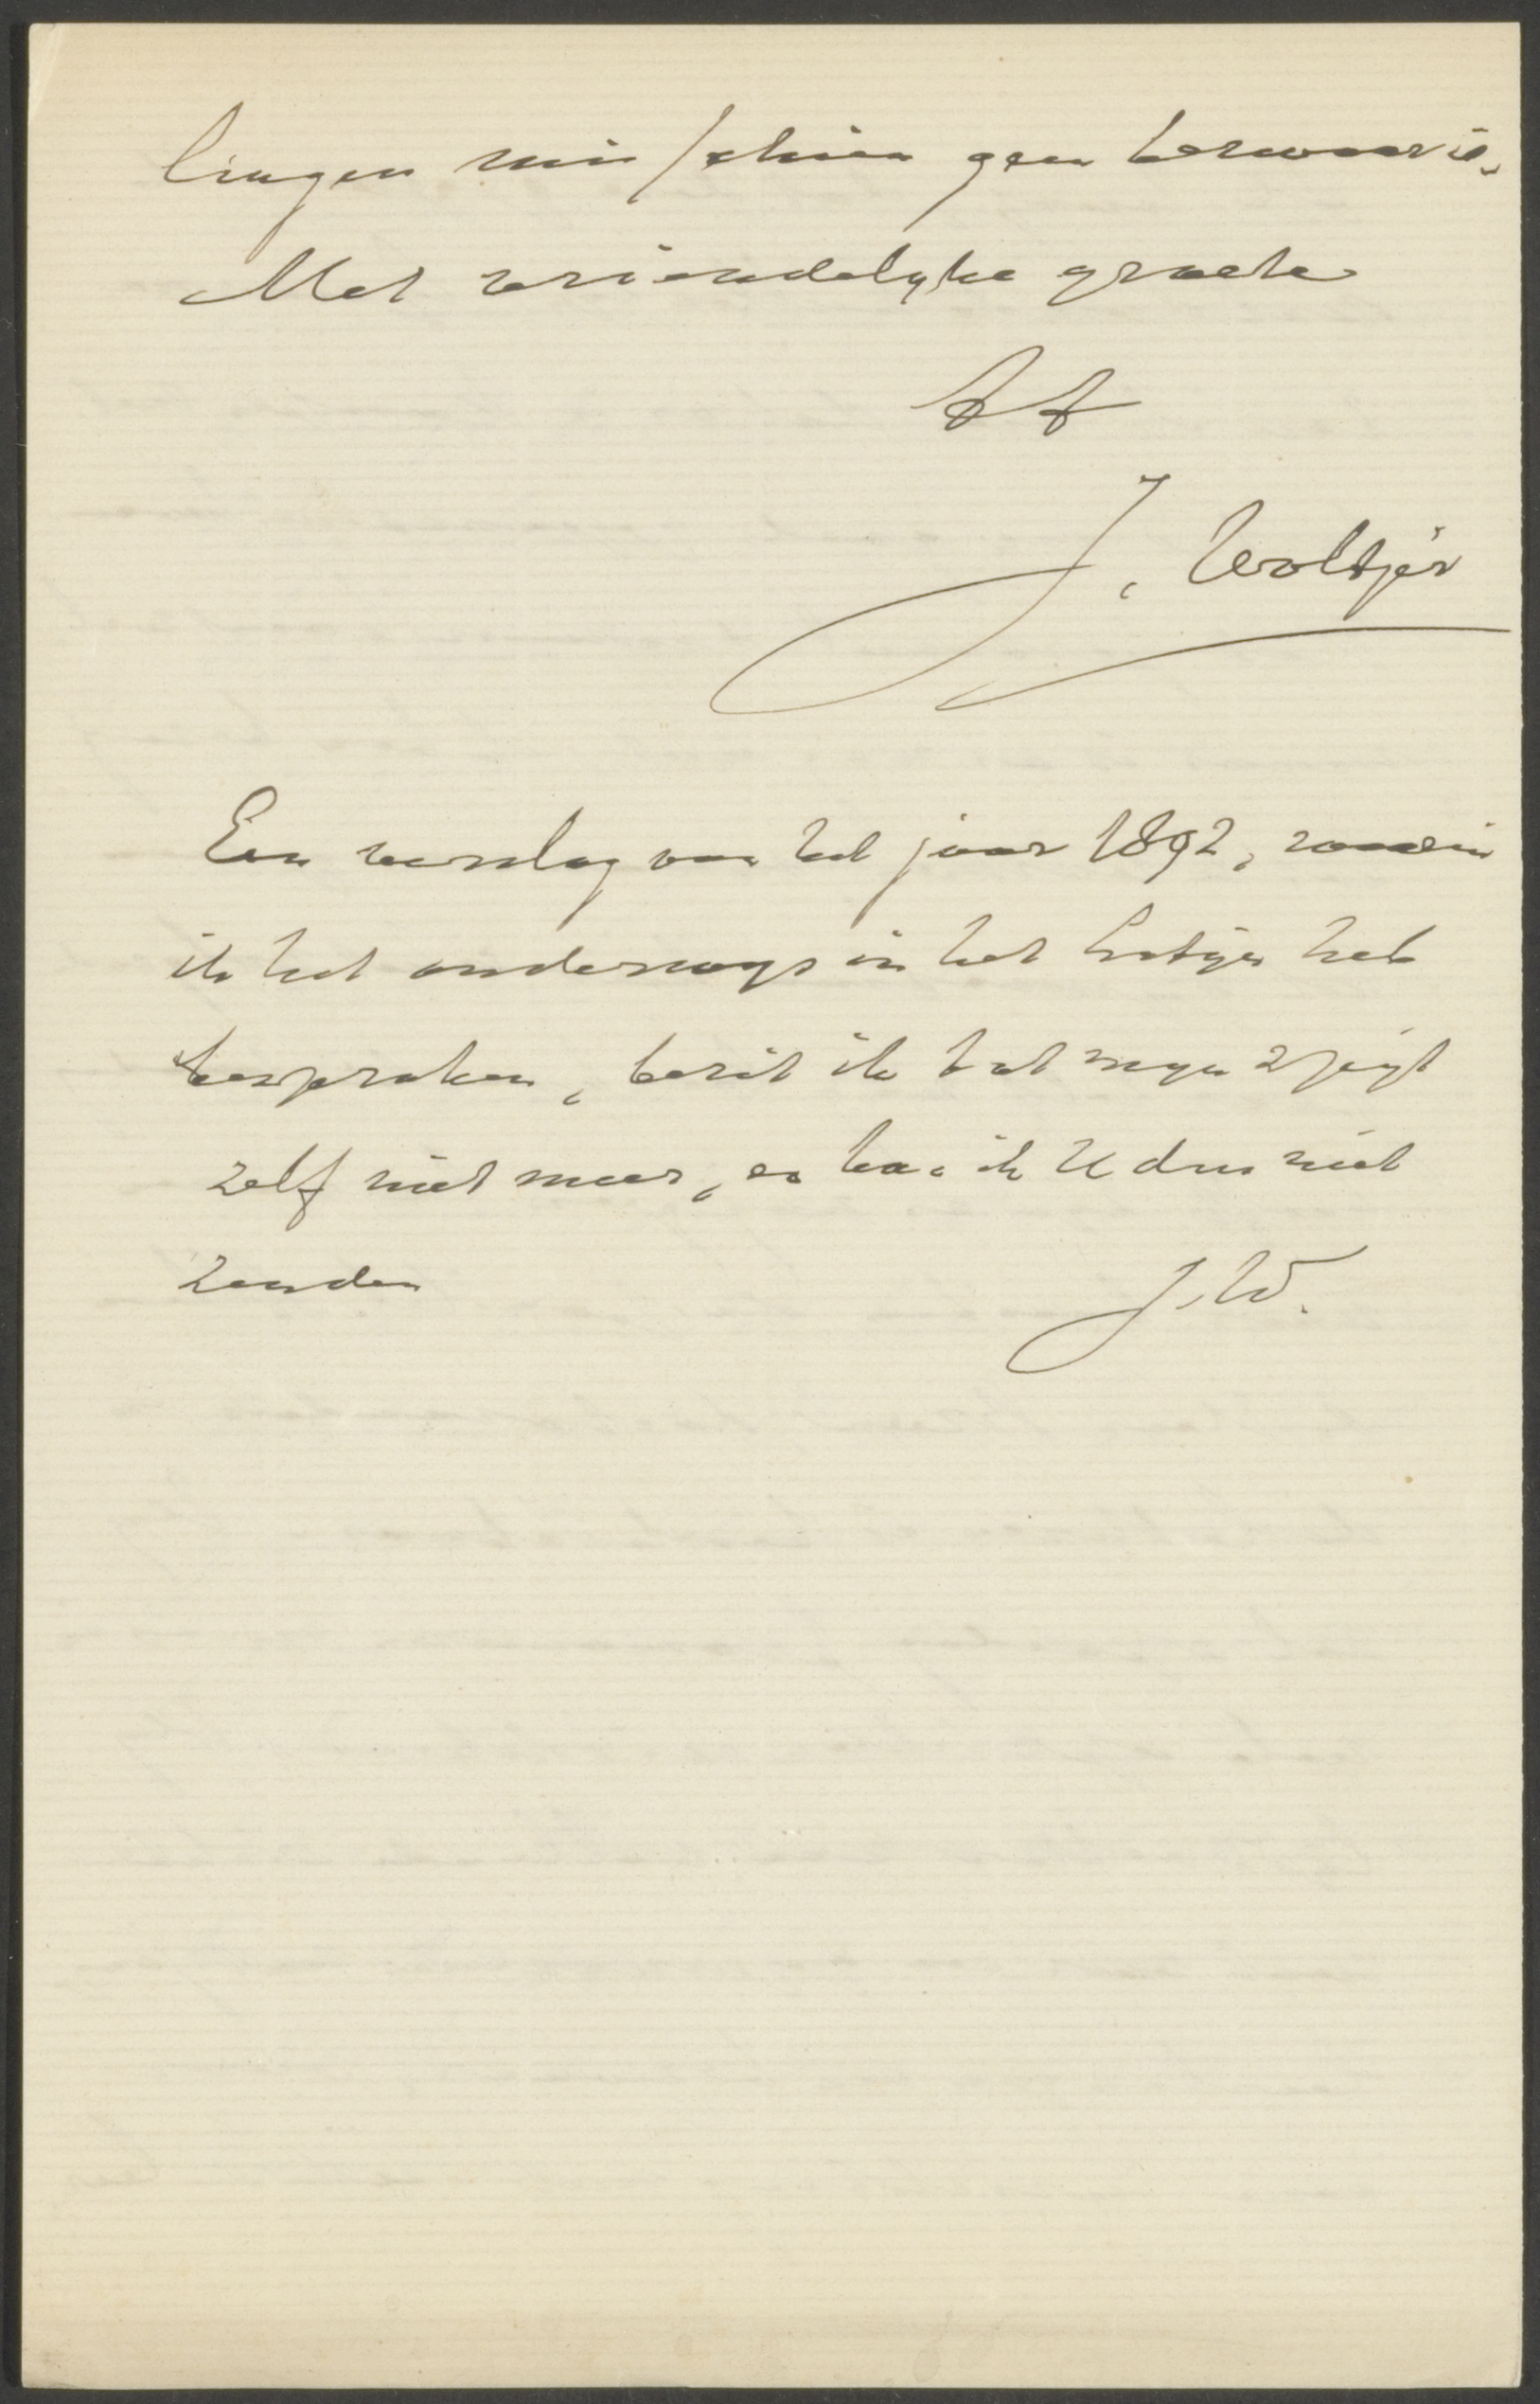 lingen misschien geen bezwaar is.
Met vriendelyke groete
tt
J. Woltjer
Een verslag van het jaar 1892, waarin
ik het onderwys in het Latyn heb
besproken, bezit ik tot myn spijt
zelf niet meer, en kan ik U dus niet
zenden
J.W.